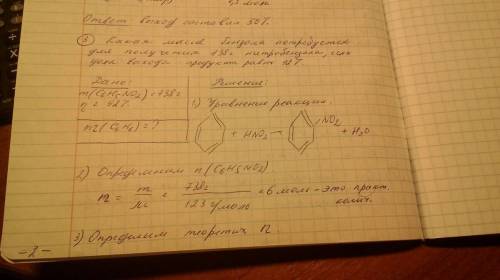 Ответ выход составил 50%.
③ Какая масса бензола потребуется
для получения 738г нитробензола, если
доля выхода продукта равна 92%
Дано:
m(C6H5NO2) = 738г
η = 92%
m(C6H6) = ?
Решение:
1) Уравнение реакции.
+ HNO3 → NO2 + H2O
2) Определим n(C6H5NO2)
n = m/M = 738г / 123 г/моль = 6 моль - это практ.
колич.
3) Определим теоретич n
-2-